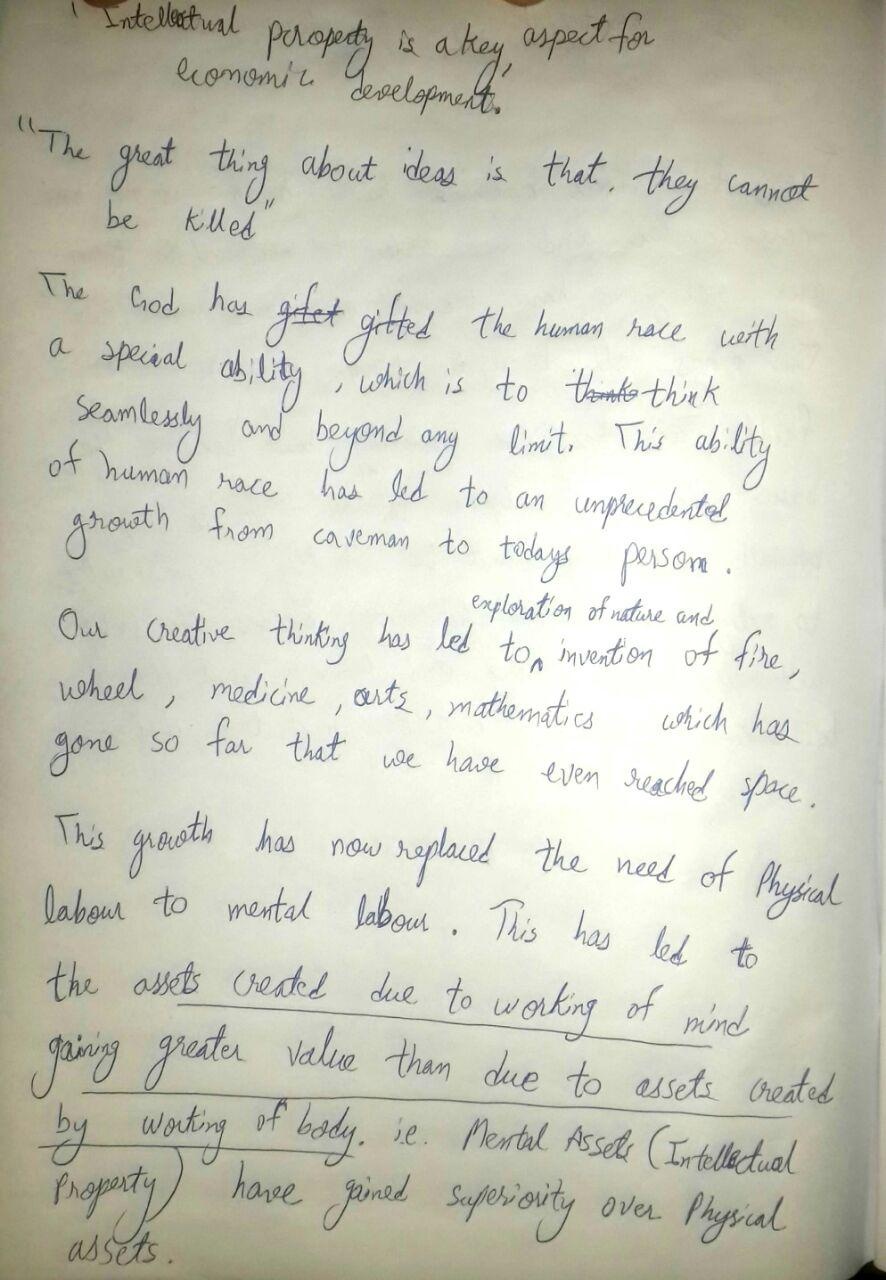 ' Intellectual property is a key aspect for
economic development.
"The great thing about ideas is that, they cannot
be killed"
The God has gifet gifted the human race with
a special ability, which is to thinks think
seamlessly and beyond any limit. This ability
of human race has led to an unprecedented
growth from caveman to todays person.
exploration of nature and
Our creative thinking has led to^ invention of fire,
wheel, medicine, arts, mathematics which has
gone so far that we have even reached space.
This growth has now replaced the need of Physical
labour to mental labour. This has led to
the assets created due to working of mind
gaining greater value than due to assets created
by working of body. i.e. Mental Assets (Intellectual
Property) have gained superiority over Physical
assets.